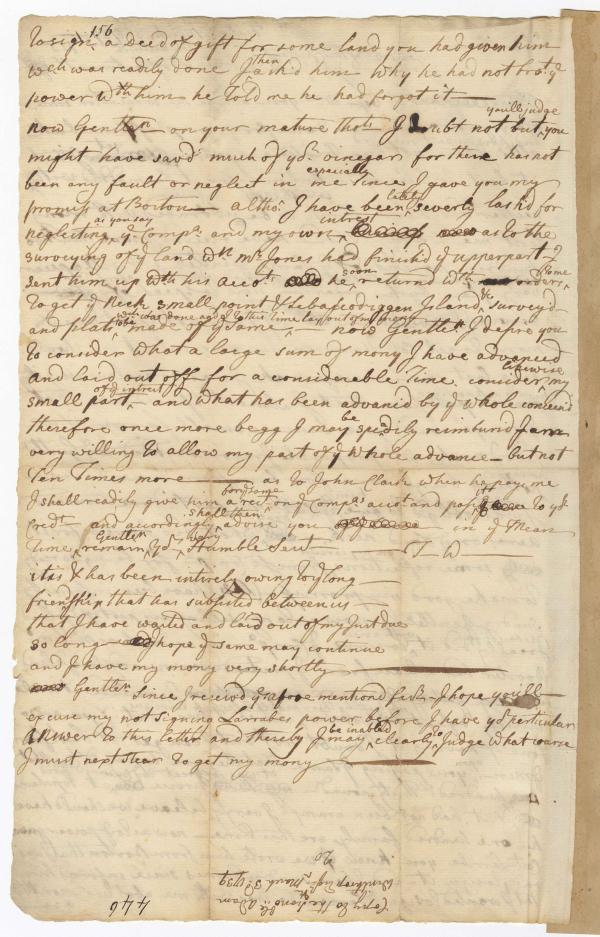 156
to sign a Deed of gift for some land you had given him
wch was readily done I then ask'd him why he had not brot ye
power wth him he told me he had forgot it
now Gentlen on your mature thots I doubt not but youill judge you
might have savd much of yr vinegar for there has not
been any fault or neglect in me especially since I gave you my
promis at Boston altho I have been lately severly lash'd for
neglecting as you say ye Compa and my own intrest as to the
surveying of ye land wn mr Jones had finishd ye upper part I
sent him up wth his accot he soon returnd wth some orders
to get ye Neck small point & Sebascodiggen Island &c survey'd
and plats to be made of ye same wch was done and to this time lay out of my mony now Gentlen I desire you
to consider what a large sum of mony I have advanced
and laid out off for a considerable Time consider likewise my
small part of ye intrest and what has been advancd by ye whole concernd
therefore once more begg I may be spedily reimbursd I am
very willing to allow my part of ye whole advance but not
Ten Times more as to John Clark when he pays me
I shall readily give him a rect on ye Compas accot and pass it to yr
Credt and accordingly shall then advise you in ye Mean
Time Gentlen remain yr very Humble Sert T W
it is & has been intirely owing to ye long
friendship that has subsisted between us
that I have waited and laid out of my Just due
so long hope ye same may continue
and I have my mony very shortly
Gentlen since I receivd yrs afore mentiond hope youill
excuse my not signing Larrabes power before I have yr particular
Answer to this letter and thereby I may be inabled clearly to Judge what coarse
I must next stear to get my mony
Copy to the Honble Adam
Winthrop Esqr March 3d 1739
446